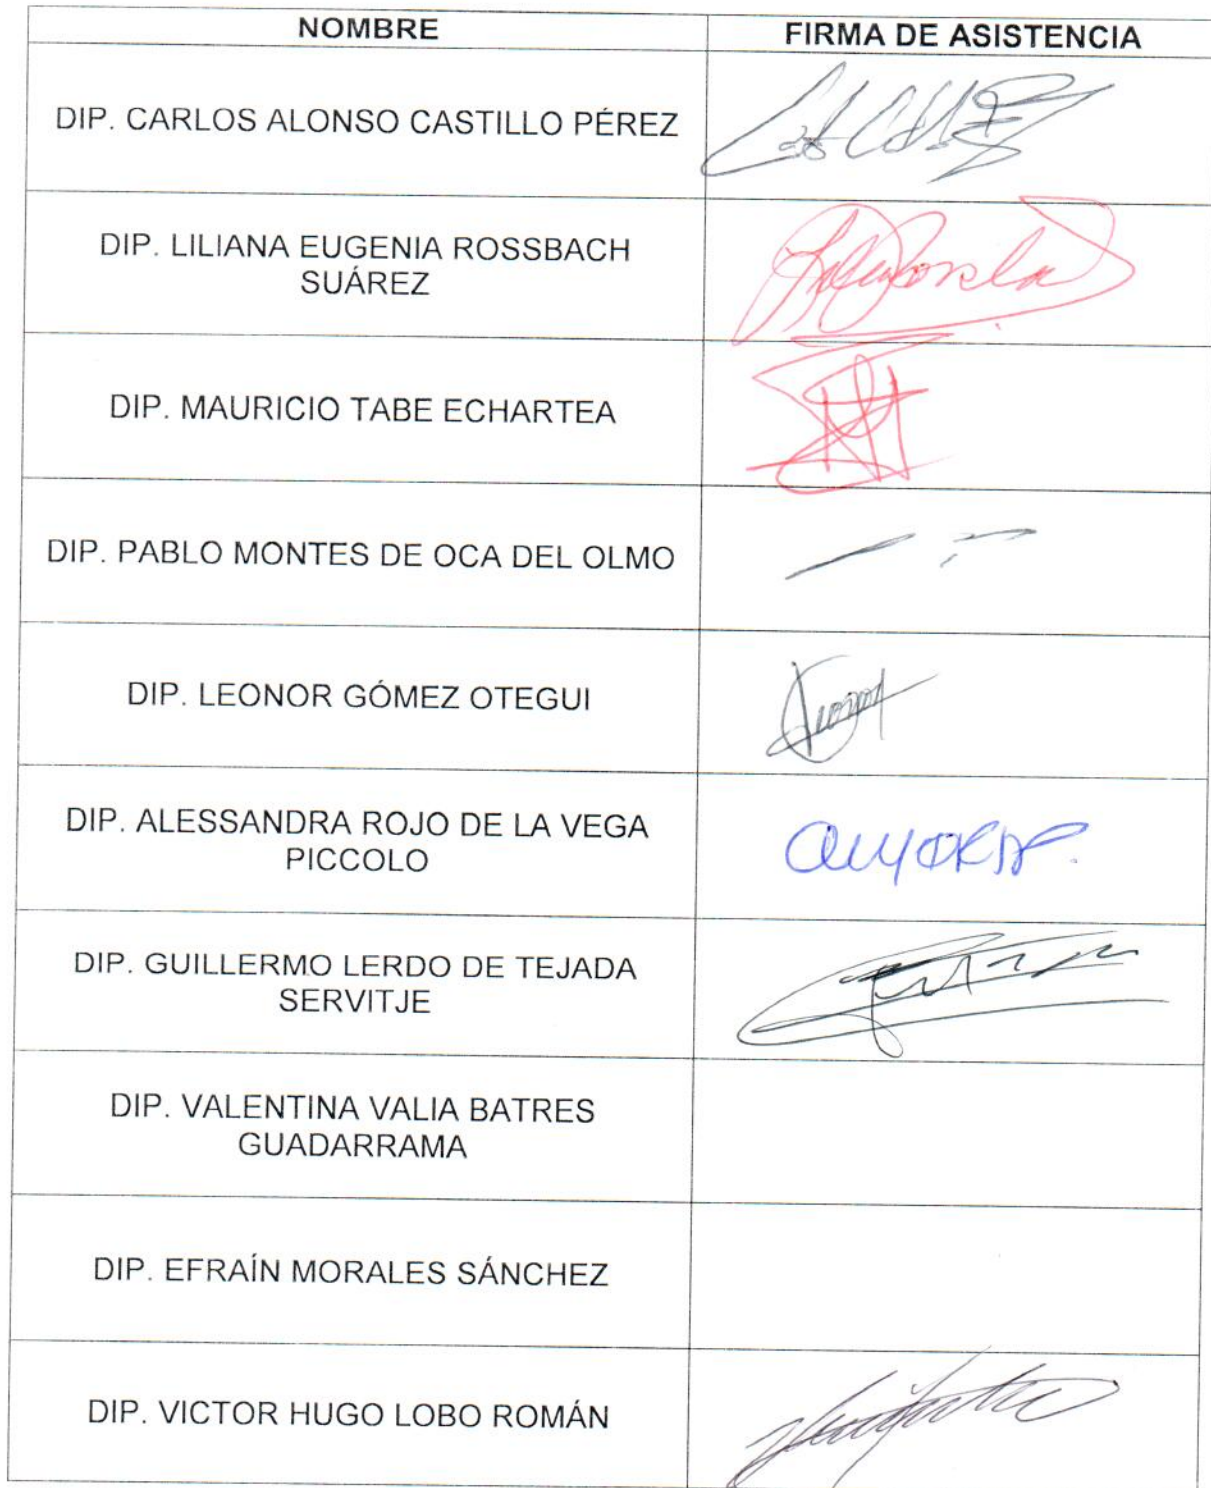 NOMBRE
FIRMA DE ASISTENCIA
DIP. CARLOS ALONSO CASTILLO PÉREZ
DIP. LILIANA EUGENIA ROSSBACH
SUÁREZ
DIP. MAURICIO TABE ECHARTEA
DIP. PABLO MONTES DE OCA DEL OLMO
DIP. LEONOR GÓMEZ OTEGUI
DIP. ALESSANDRA ROJO DE LA VEGA
PICCOLO
DIP. GUILLERMO LERDO DE TEJADA
SERVITJE
DIP. VALENTINA VALIA BATRES
GUADARRAMA
DIP. EFRAÍN MORALES SÁNCHEZ
DIP. VICTOR HUGO LOBO ROMÁN